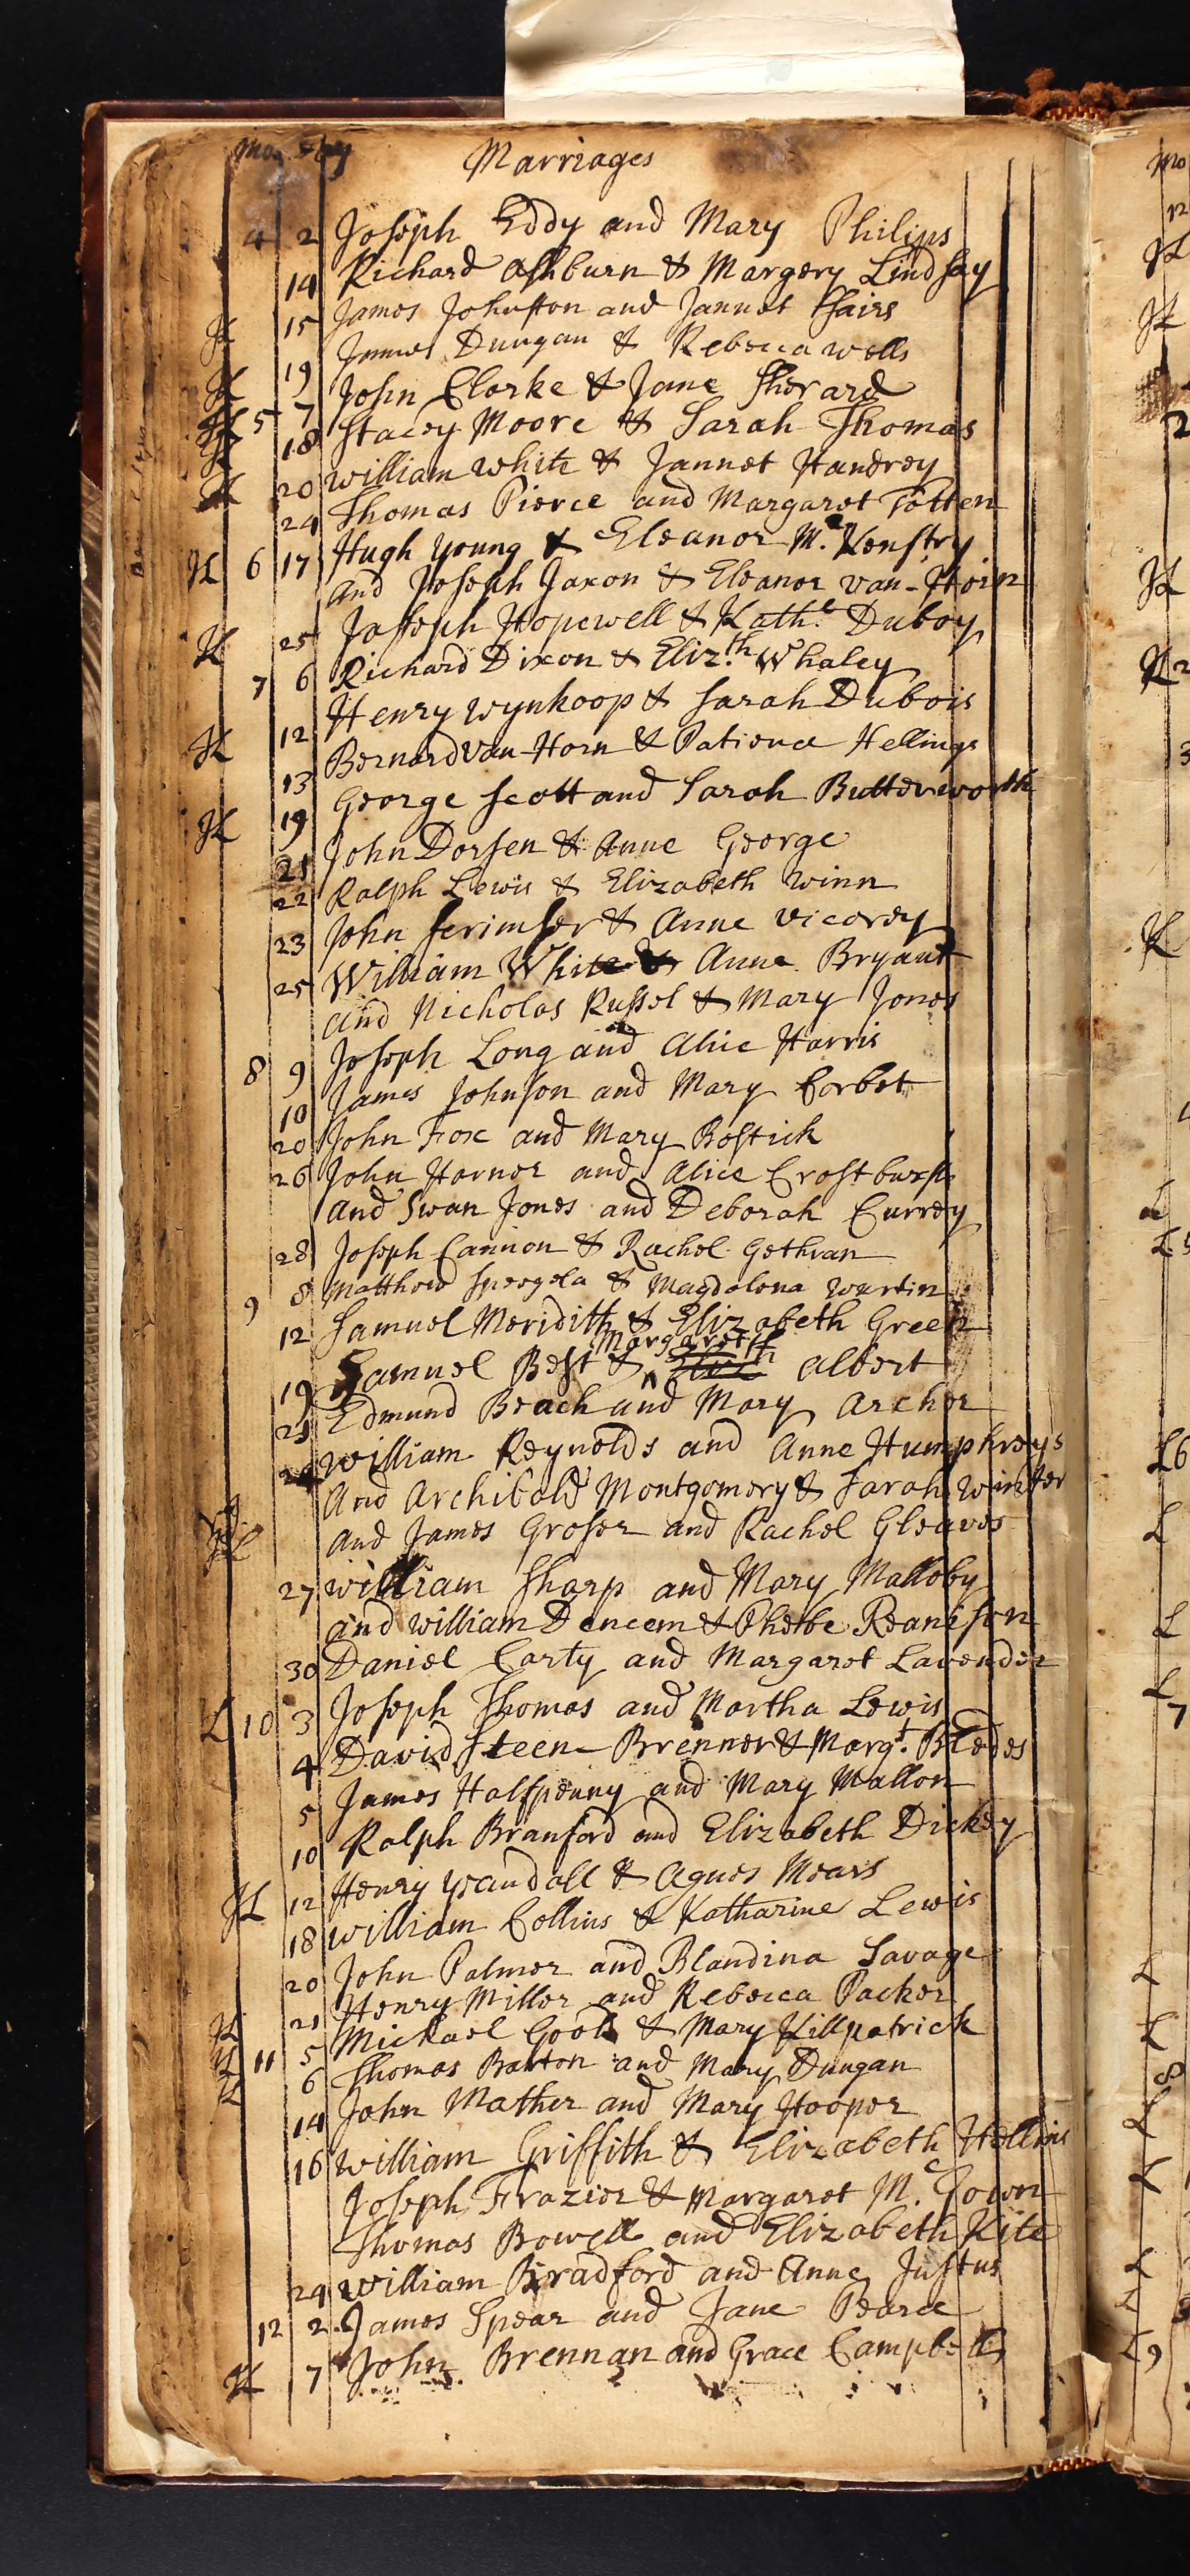 Mo. Day Marriages
4 2 Joseph Eddy and Mary Philips
14 Richard Ashburn & Margery Lindsay
15 James Johnston and Jannet ffairs
19 James Dungan & Rebecca wells
5 7 John Clarke & Jane Sherard
18 Stacey Moore & Sarah Thomas
20 William White & Jannet
24 Thomas Pierce and Margaret Totten
6 17 Hugh young & Eleanor Mc. Kenstry
and Joseph Jaxon & Eleanor van-Horn
25 Joseph Hopewell & Kathe. Duboy
7 6 Richard Dixon & Elizth. Whaley
12 Henry wynkoop & Sarah Dubois
13 Bernard van-Horn & Patience Hellings
19 George Scott and Sarah Butterworth
21 John Dorsen & Anne George
22 Ralph Lewis & Elizabeth Winn
23 John Scrimser & Anne Vicorey
25 William White & Anne Bryant
and Nicholas Russel & Mary Jones
8 9 Joseph Long and Alice Harris
10 James Johnson and Mary Corbet
20 John Fox and Mary Bostick
26 John Harnor and Alice
and Swan Jones and Deborah Currey
28 Joseph Cannon & Rachel Gethran
9 8 Matthew & Magdalena
12 Samuel Meridith & Elizabeth Green
Margarett
19 Samuel Best & albert
21 Edmund Beach and Mary Archer
24 William Reynolds and Anne Humphreys
And Archibald Montgomery & Sarah Winter
and James Groser and Rachel Gleaves
27 William Sharp and Mary Malloby
and William & Phebe
30 Daniel Carty and Margaret Lavender
L 10 3 Joseph Thomas and Martha Lewis
4 David Steen-Brenner & Margt. Bledes
5 James Halfpenny and Mary Mallon
10 Ralph Branford and Elizabeth Dickey
12 Henry yeandall & Agnes Mears
18 William Collins & Katharine Lewis
20 John Palmer and Blandina Savage
21 Henry Miller and Rebecca Packer
11 5 Michael Gook & Mary Killpatrick
6 Thomas Barton and Mary Dungan
14 John Mather and Mary Hooper
16 William Griffith & Elizabeth Hollins
Joseph Frazier & Margaret Mc. Gown
Thomas Bowell and Elizabeth Kite
24 William Bradford and Anne Justus
12 2 James Spear and Jane Pearce
7 John Brennan and Grace Campbell